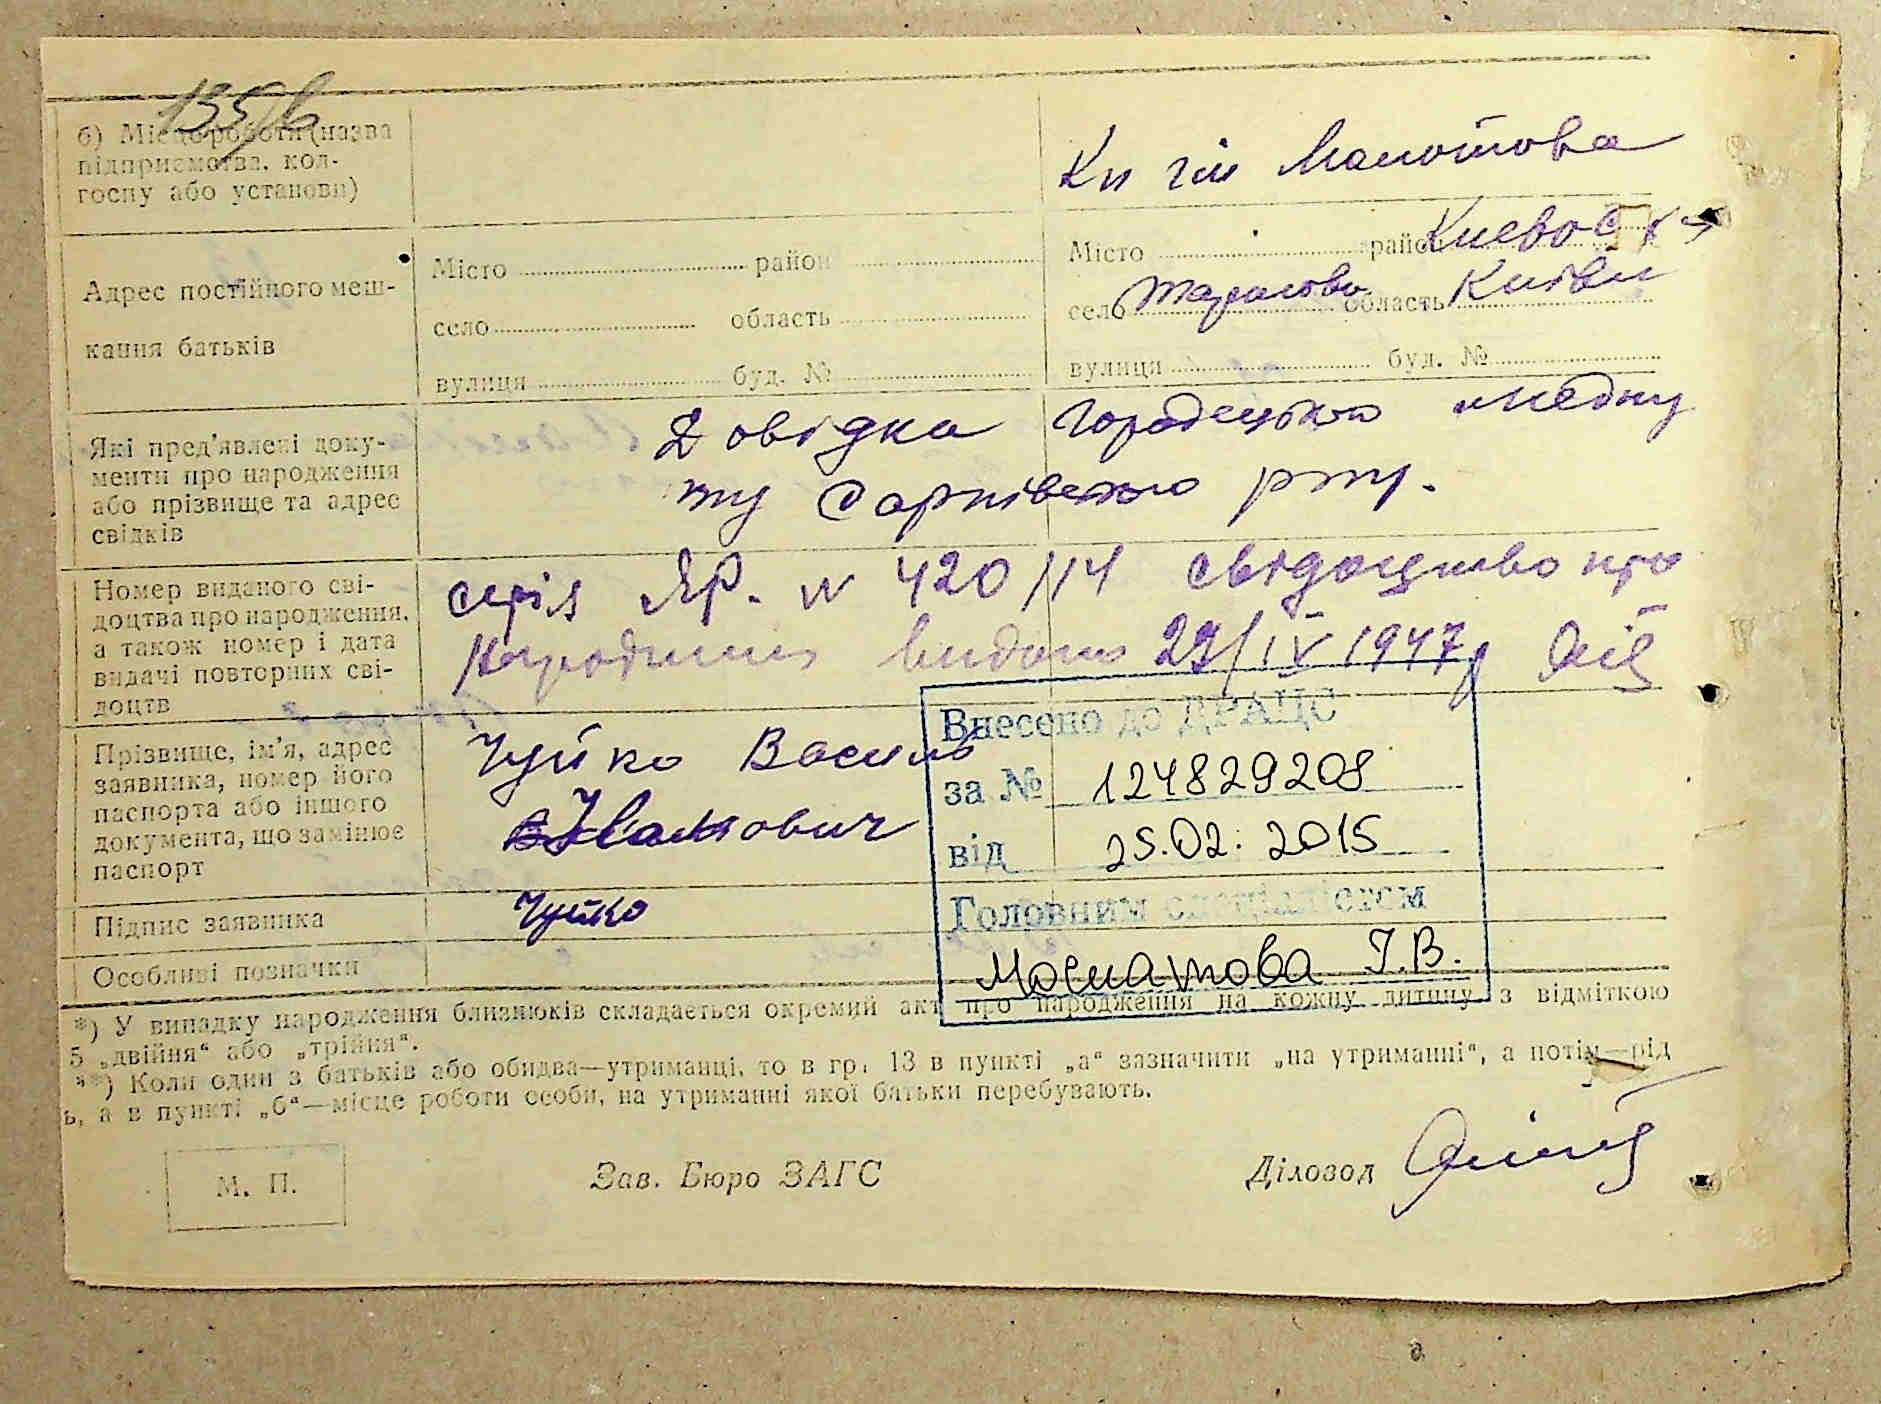 б) Місце роботи (назва
підприємства, кол-
госпу або установи)
Адрес постійного меш-
кання батьків
Місто район
село область
вулиця буд. №
Місто район Киевос
село Тарасовка область Київ
вулиця буд. №
Які пред'явлені доку-
менти про народження
або прізвище та адрес
свідків
Довідка Городецько
рту.
Номер виданого сві-
доцтва про народження,
а також номер і дата
видачі повторних сві-
доцтв
серія ЯР. N 420114 свідоцтво про
видано 1947
Прізвище, ім'я, адрес
заявника, номер його
паспорта або іншого
документа, що замінює
паспорт
Чуйко Василь
Підпис заявника
Чуйко
Особливі позначки
Внесено до ДРАЦС
за № 124829208
від 25.02.2015
Головним спеціалістом
І.В.
*) У випадку народження близнюків складається окремий акт про народження на кожну дитину з відміткою
5 „двійня“ або „трійня“.
**) Коли один з батьків або обидва—утриманці, то в гр. 13 в пункті „а“ зазначити „на утриманні“, а потім—рід
ь, а в пункті „б“—місце роботи особи, на утриманні якої батьки перебувають.
М. П.
Зав. Бюро ЗАГС
Діловод